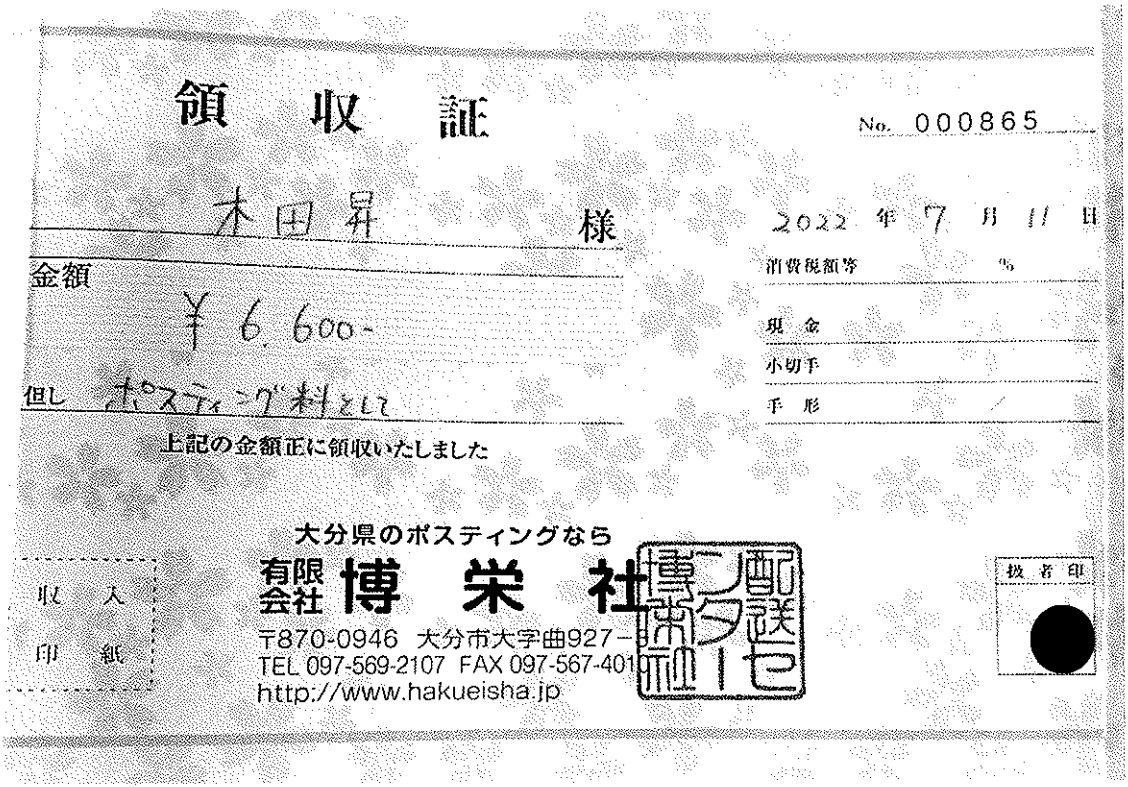 領収証
No. 000865
木田昇 様
2022 年 7 月 11 日
消費税額等 %
金額
¥ 6.600-
現金
小切手
手形
但し ポスティング料として
上記の金額正に領収いたしました
大分県のポスティングなら
有限会社 博栄社
〒870-0946 大分市大字曲927-
TEL 097-569-2107 FAX 097-567-401
http://www.hakueisha.jp
博栄社配送センター
収入印紙
扱者印